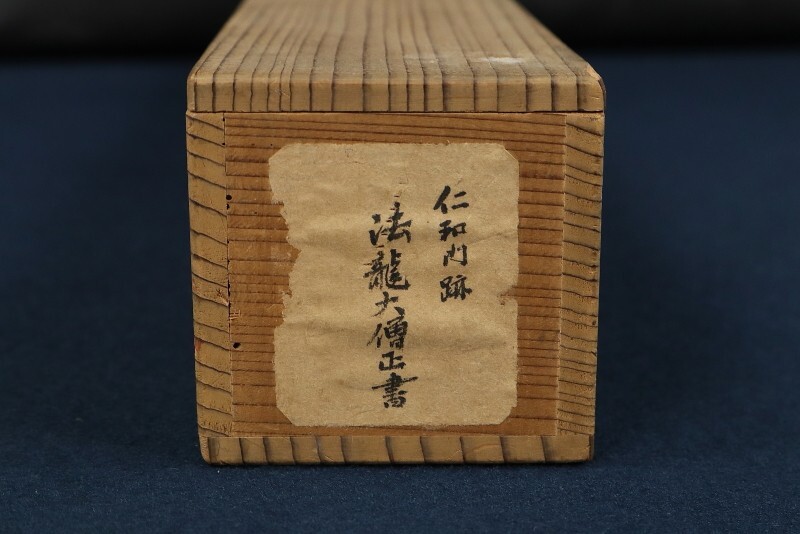 仁和門跡
法龍大僧正書